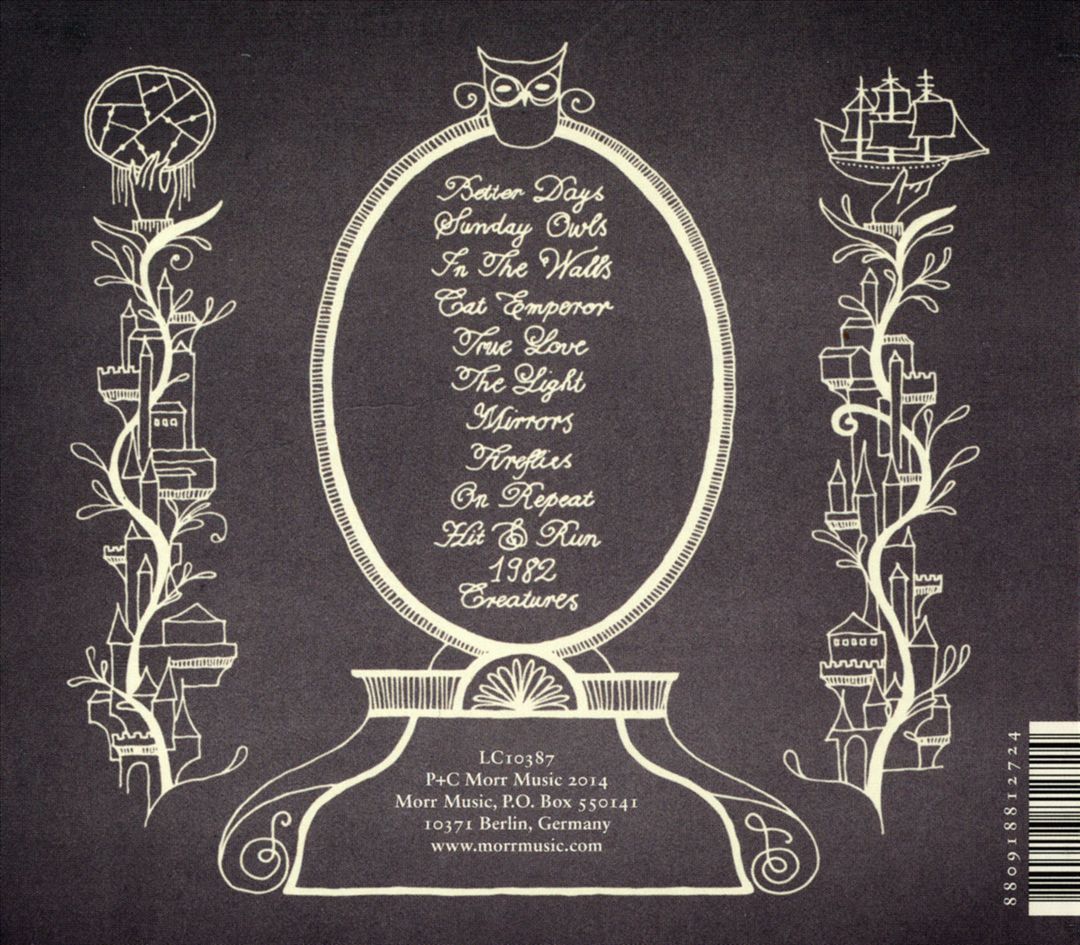 Better Days
Sunday Owls
In The Walls
Cat Emperor
True Love
The Light
Mirrors
Fireflies
On Repeat
Hit & Run
1982
Creatures
LC10387
P+C Morr Music 2014
Morr Music, P.O. Box 550141
10371 Berlin, Germany
www.morrmusic.com
8809188127 24